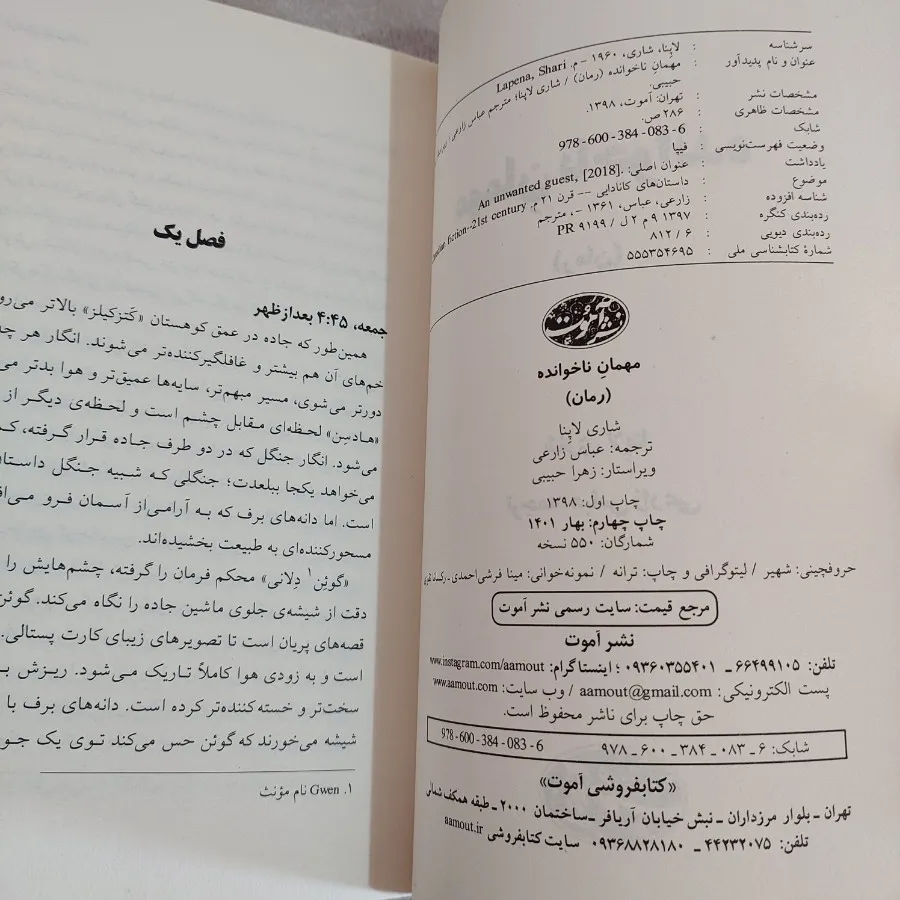 سرشناسه : لاپنا، شاری، ۱۹۶۰ - م. Lapena, Shari
عنوان و نام پدیدآور : مهمانِ ناخوانده (رمان) / شاری لاپنا؛ مترجم عباس زارعی؛
حبیبی.
مشخصات نشر : تهران: آموت، ۱۳۹۸.
مشخصات ظاهری : ۲۸۶ ص.
شابک : 978-600-384-083-6
وضعیت فهرست‌نویسی : فیپا
یادداشت : عنوان اصلی: An unwanted guest, [2018].
موضوع : داستان‌های کانادایی -- قرن ۲۱ م. fiction--21st century
شناسه افزوده : زارعی، عباس، ۱۳۶۱ -، مترجم
رده‌بندی کنگره : PR ۹۱۹۹ / ل ۲ م ۹ ۱۳۹۷
رده‌بندی دیویی : ۸۱۲/۶
شمارهٔ کتابشناسی ملی : ۵۵۵۳۵۴۶۹۵
نشر آموت
مهمانِ ناخوانده
(رمان)
شاری لاپِنا
ترجمه: عباس زارعی
ویراستار: زهرا حبیبی
چاپ اول: ۱۳۹۸
چاپ چهارم: بهار ۱۴۰۱
شمارگان: ۵۵۰ نسخه
حروفچینی: شهیر / لیتوگرافی و چاپ: ترانه / نمونه‌خوانی: مینا فرشی‌احمدی ـ
مرجع قیمت: سایت رسمی نشر آموت
نشر آموت
تلفن: ۶۶۴۹۹۱۰۵ ـ ۰۹۳۶۰۳۵۵۴۰۱ ؛ اینستاگرام: www.instagram.com/aamout
پست الکترونیکی: aamout@gmail.com / وب سایت: www.aamout.com
حق چاپ برای ناشر محفوظ است.
شابک: ۶ ـ ۰۸۳ ـ ۳۸۴ ـ ۶۰۰ ـ ۹۷۸ 978-600-384-083-6
«کتابفروشی آموت»
تهران ـ بلوار مرزداران ـ نبش خیابان آریافر ـ ساختمان ۲۰۰۰ ـ طبقه همکف شمالی
تلفن: ۴۴۲۳۲۰۷۵ ـ ۰۹۳۶۸۸۲۸۱۸۰ سایت کتابفروشی aamout.ir
فصل یک
جمعه، ۴:۴۵ بعدازظهر
همین‌طور که جاده در عمق کوهستان «کَتزکیلز» بالاتر می‌رو
خم‌های آن هم بیشتر و غافلگیرکننده‌تر می‌شوند. انگار هر چه
دورتر می‌شوی، مسیر مبهم‌تر، سایه‌ها عمیق‌تر و هوا بدتر می
«هادسِن» لحظه‌ای مقابل چشم است و لحظه‌ی دیگر از
می‌شود. انگار جنگل که در دو طرف جاده قرار گرفته، کم
می‌خواهد یکجا ببلعدت؛ جنگلی که شبیه جنگل داستان
است. اما دانه‌های برف که به آرامی‌از آسمان فرو می‌اف
مسحورکننده‌ای به طبیعت بخشیده‌اند.
«گوئِن۱ دِلانی» محکم فرمان را گرفته، چشم‌هایش را
دقت از شیشه‌ی جلوی ماشین جاده را نگاه می‌کند. گوئن
قصه‌های پریان است تا تصویرهای زیبای کارت پستالی.
است و به زودی هوا کاملاً تاریک می‌شود. ریزش ب
سخت‌تر و خسته‌کننده‌تر کرده است. دانه‌های برف با
شیشه می‌خورند که گوئن حس می‌کند توی یک جو
۱. Gwen نام مؤنث